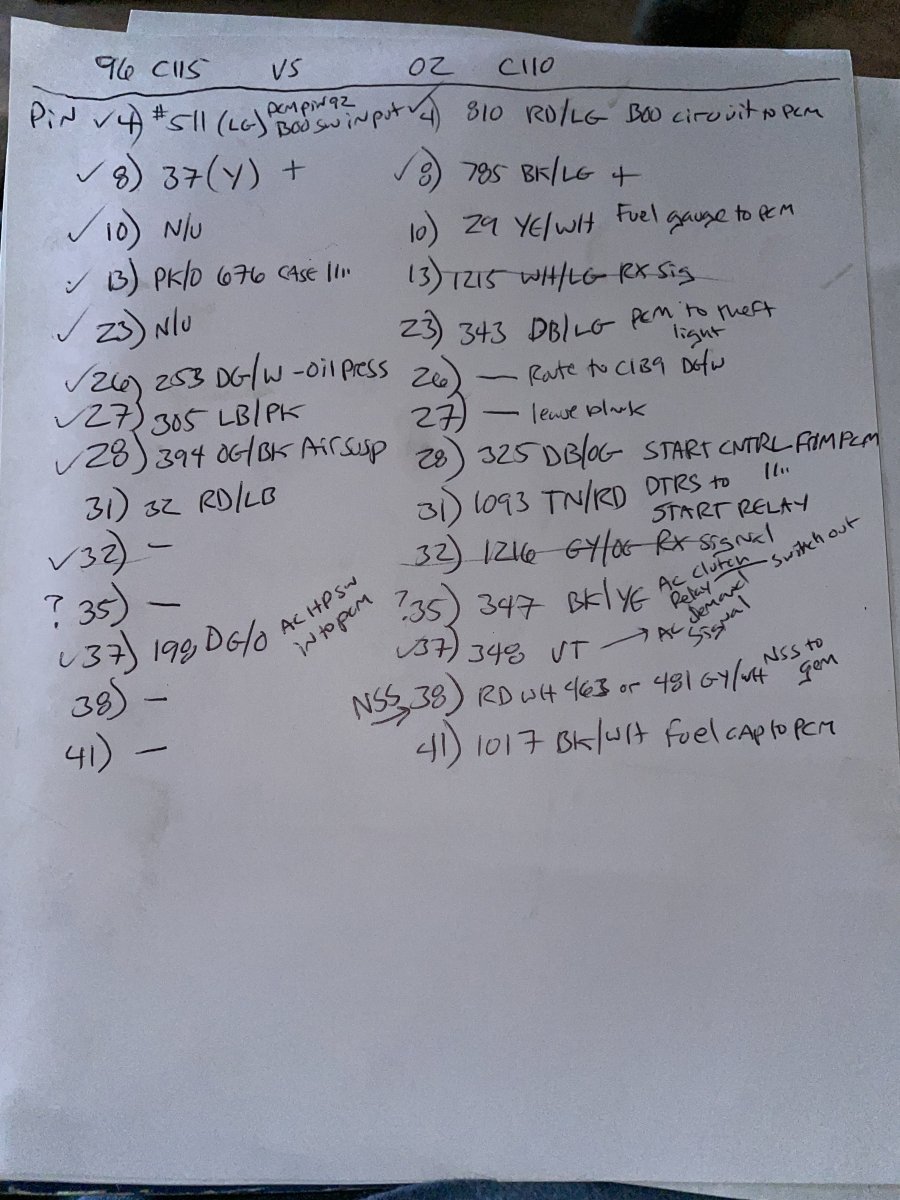 96 C115 VS 02 C110
PiN ✓4) #511 (LG) PCM PiN 92 BOO SW iNput ✓4) 810 RD/LG BOO circuit to PCM
✓8) 37(Y) + ✓8) 785 BK/LG +
✓10) N/U 10) 29 YE/WH Fuel gauge to PCM
✓13) PK/O 676 CASE 11" 13) 1215 WH/LG RX Sig
✓23) N/U 23) 343 DB/LG PCM to theft light
✓26) 253 DG/W - Oil Press 26) — Route to C139 DG/W
✓27) 305 LB/PK 27) — leave blank
✓28) 394 OG/BK Air Susp 28) 325 DB/OG START CNTRL PCM
31) 32 RD/LB 31) 1093 TN/RD DTRS to 11" START RELAY
✓32) — 32) 1216 GY/OG RX Signal
? 35) — ?35) 347 BK/YE AC Clutch Relay switch out
✓37) 198 DG/O AC HP SW in to pcm ✓37) 348 VT → AC demand Signal
38) — NSS → 38) RD WH 463 or 481 GY/WH NSS to gem
41) — 41) 1017 BK/WH Fuel cap to PCM